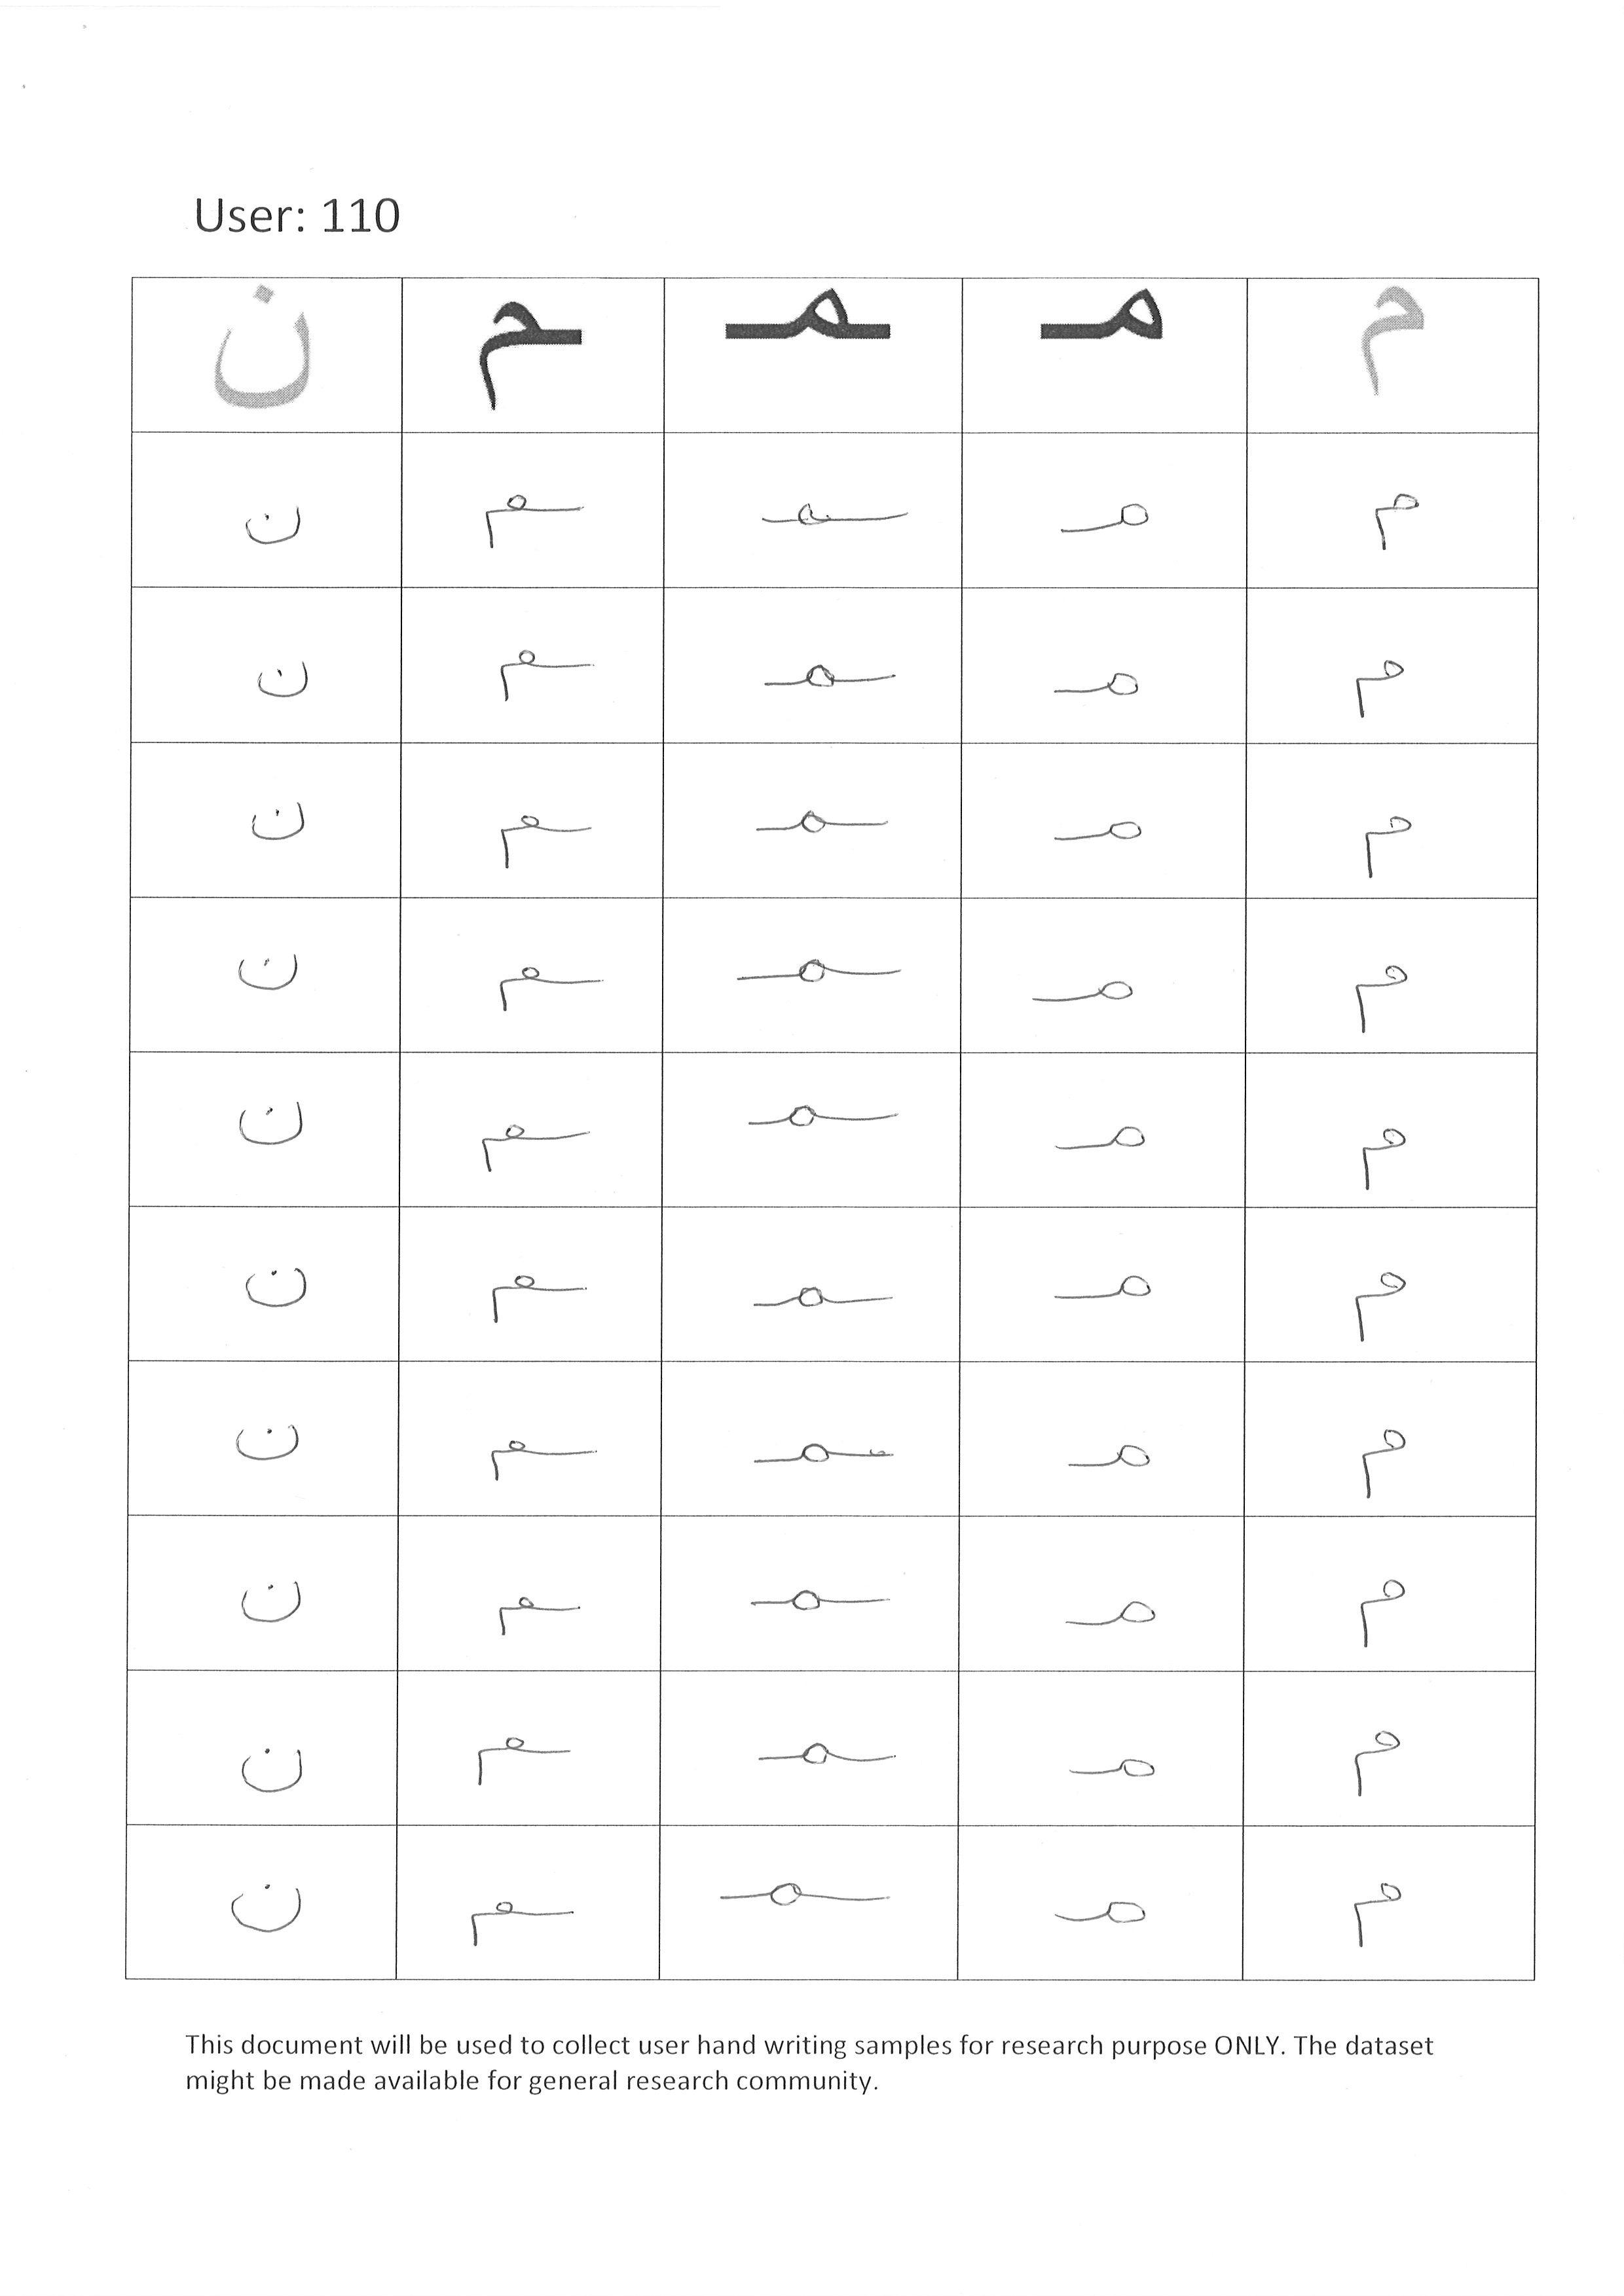 User: 110
م مـ ـمـ ـم ن
م مـ ـمـ ـم ن
م مـ ـمـ ـم ن
م مـ ـمـ ـم ن
م مـ ـمـ ـم ن
م مـ ـمـ ـم ن
م مـ ـمـ ـم ن
م مـ ـمـ ـم ن
م مـ ـمـ ـم ن
م مـ ـمـ ـم ن
م مـ ـمـ ـم ن
This document will be used to collect user hand writing samples for research purpose ONLY. The dataset
might be made available for general research community.